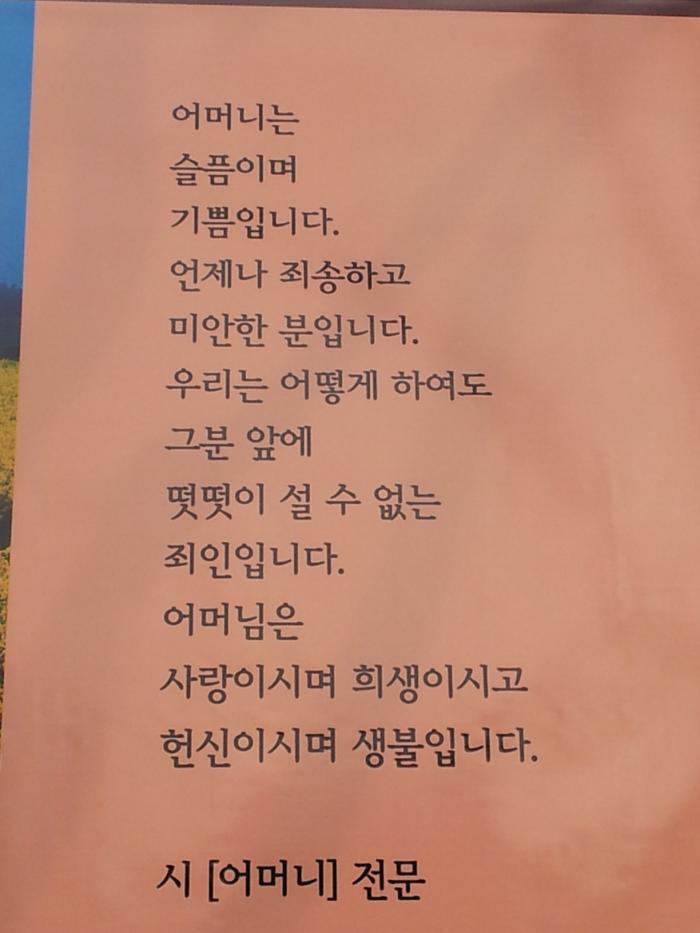 어머니는
슬픔이며
기쁨입니다.
언제나 죄송하고
미안한 분입니다.
우리는 어떻게 하여도
그분 앞에
떳떳이 설 수 없는
죄인입니다.
어머님은
사랑이시며 희생이시고
헌신이시며 생불입니다.
시 [어머니] 전문